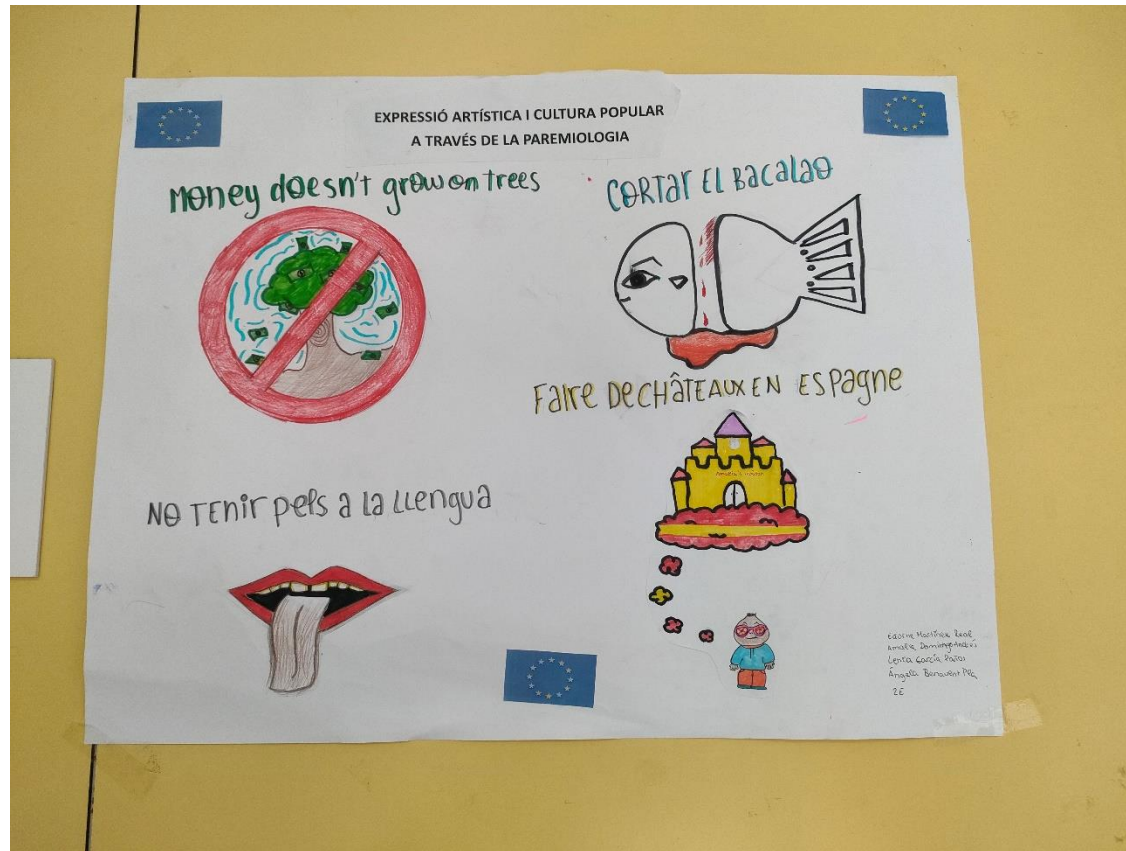 EXPRESSIÓ ARTÍSTICA I CULTURA POPULAR
A TRAVÉS DE LA PAREMIOLOGIA
Money doesn't grow on trees
CORTAR EL BACALAO
FAIRE DE CHÂTEAUX EN ESPAGNE
NO TENIR PELS A LA LLENGUA
Martínez Real
Amalia Domingo
García
Àngela Benavent
2E